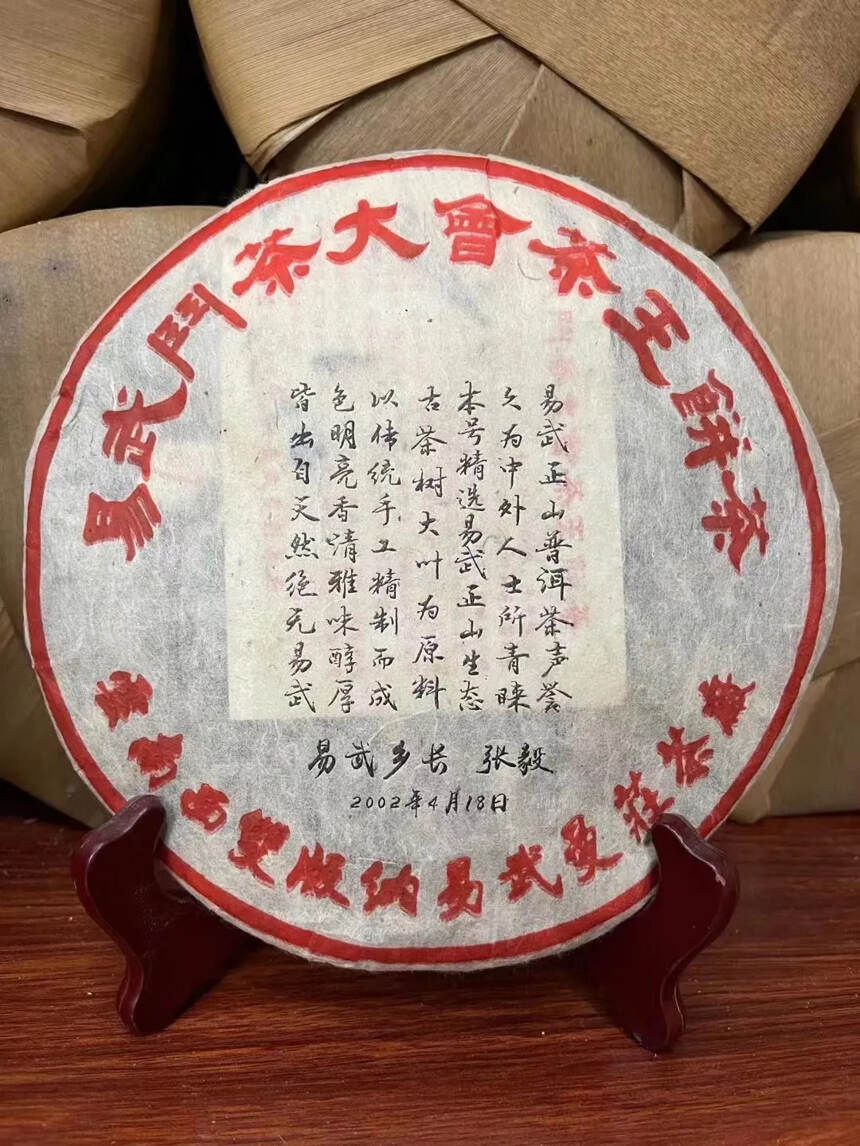 易武鬥茶大會茶王餅茶
易武正山普洱茶声誉
久为中外人士所青睐
本号精选易武正山生态
古茶树大叶为原料
以传统手工精制而成
色明亮香晴雅味醇厚
皆出自天然绝无易武
易武乡长 张毅
2002年4月18日
雲南西雙版納易武曼